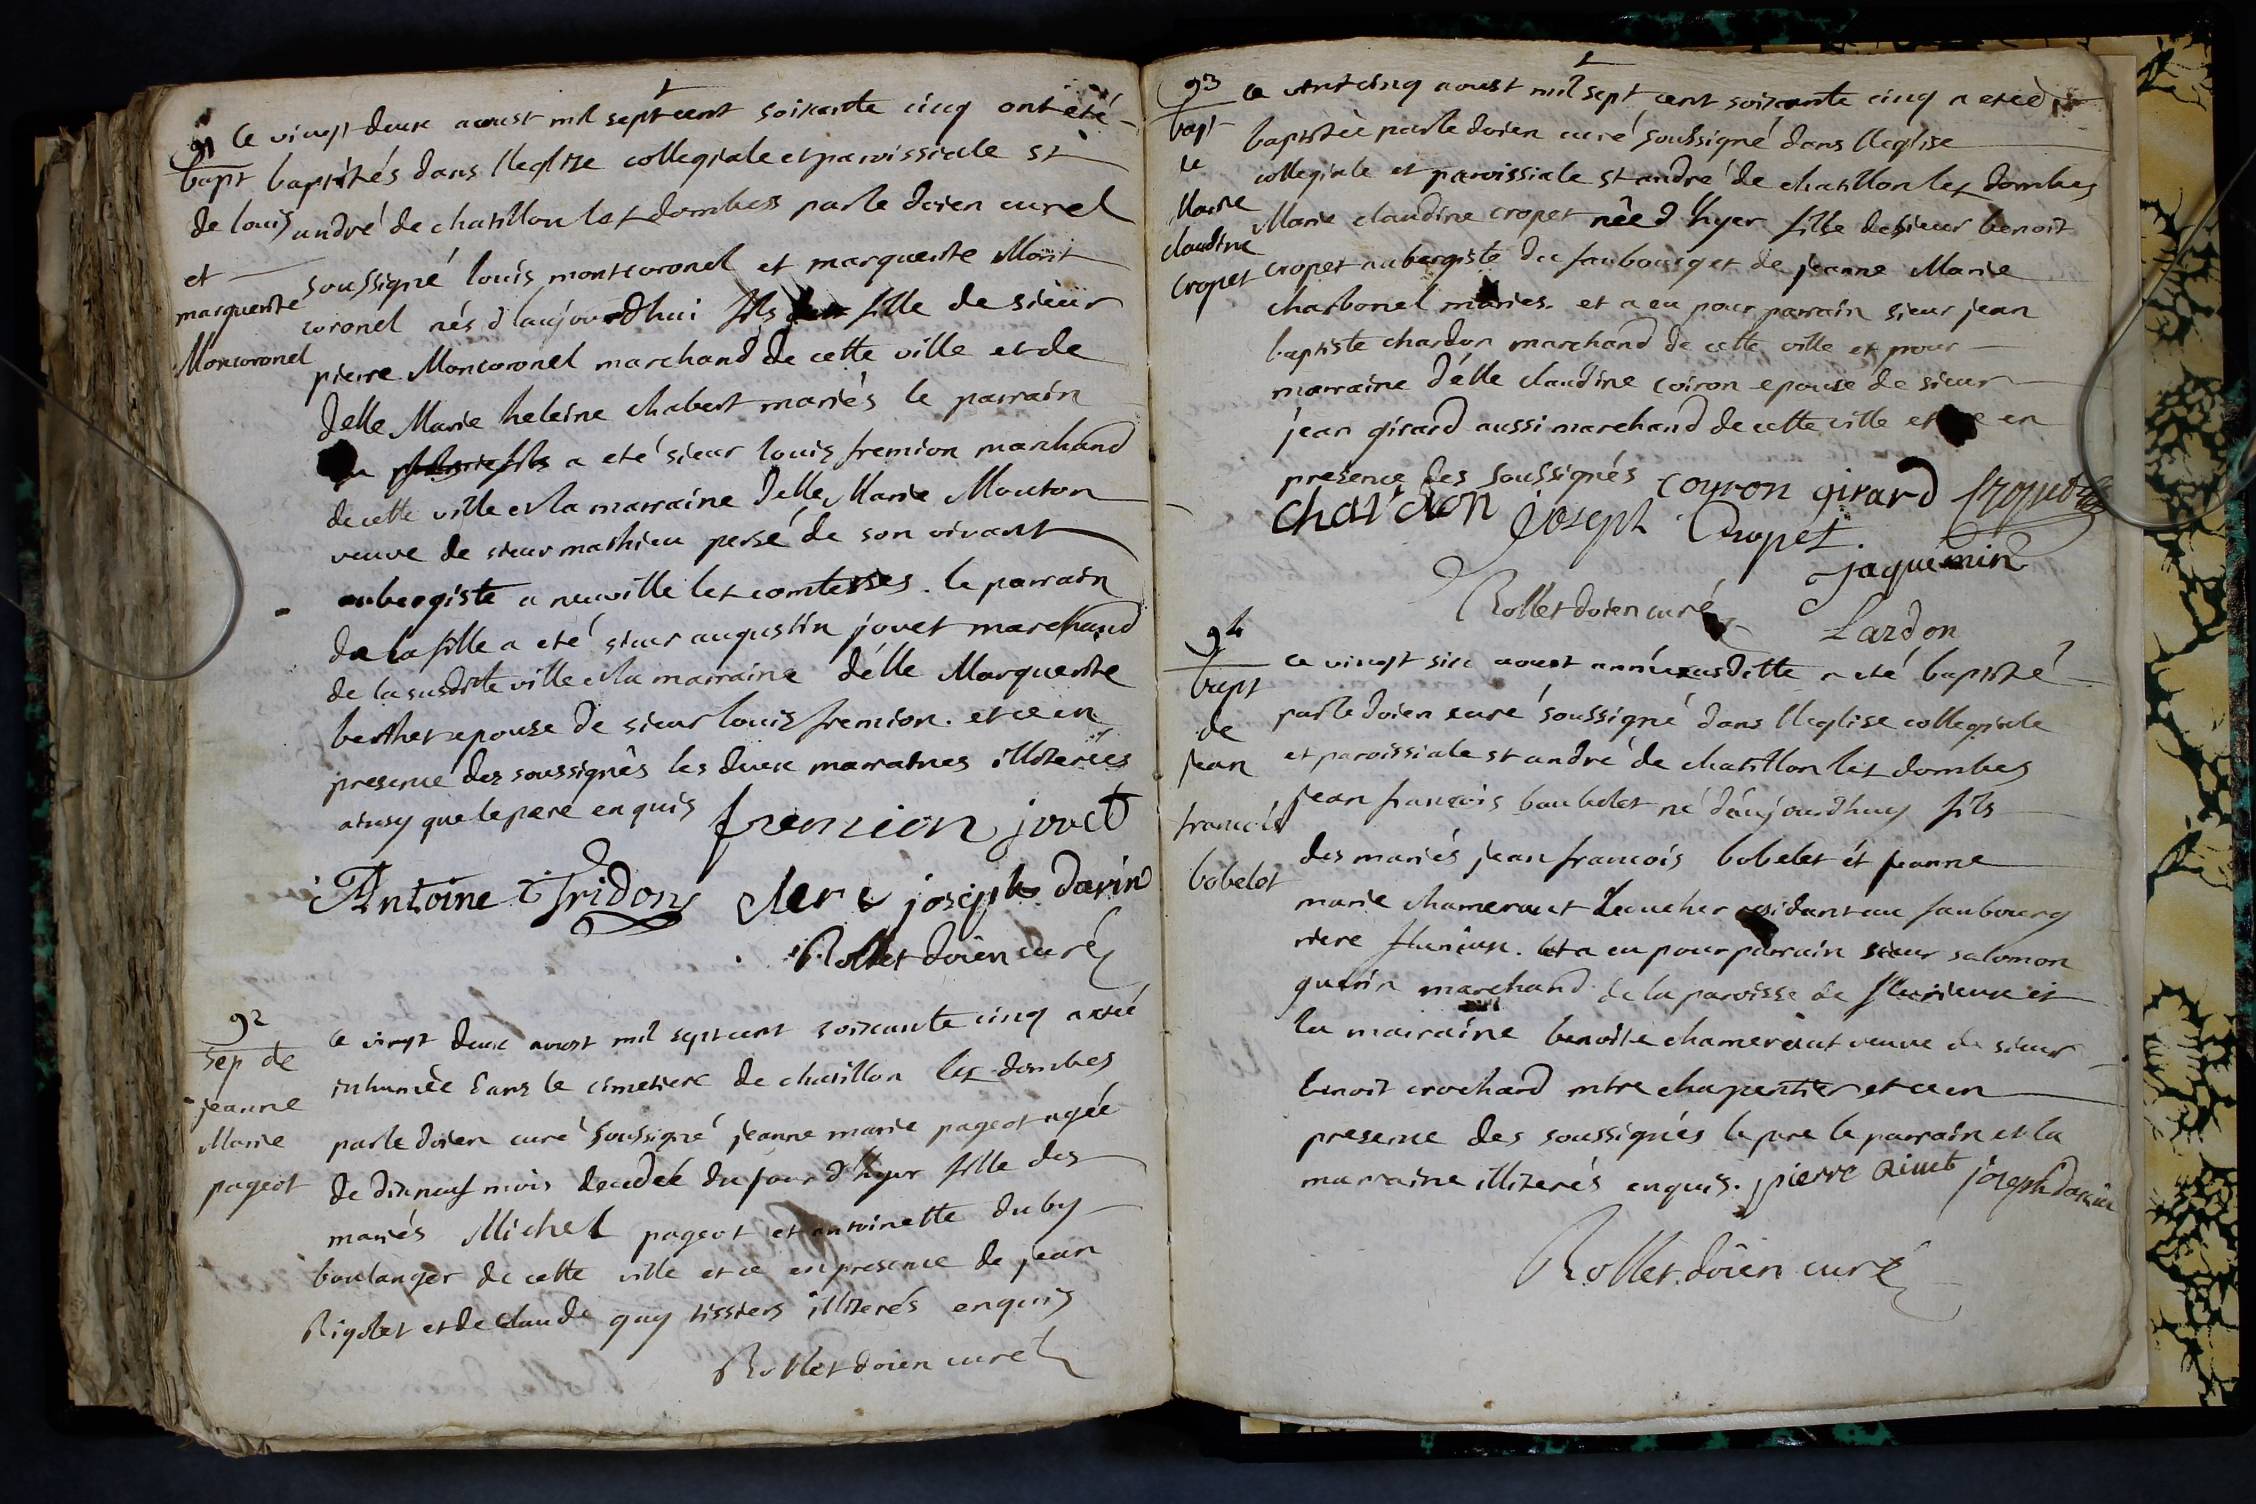 91
bapt
de louis
et
marguerite
Moncoronel
Ce vingt deux aoust mil sept cent soixante cinq ont eté
baptisés dans l'leglise collegiale et paroissiale st
andré de chatillon les dombes par le doien curé
soussigné louis montcoronel et marguerite Mont
coronel nés d'aujourdhui fils fille de sieur
pierre Moncoronel marchand de cette ville et de
delle Marie heleine chabert mariés le parrain
a eté sieur louis fremion marchand
de cette ville et la marraine delle Marie Mouton
veuve de sieur mathieu persé de son vivant
aubergiste a neuville les comtesses. le parrain
de la fille a eté sieur augustin jovet marchand
de la susditte ville et la marraine délle Marguerite
berthet epouse de sieur louis fremion. et ce en
presence des soussignés les deux marraines illiterées
ainsy que le pere enquis fremion jovet
Antoine thridon clerc joseph darin
Rollet doien curé
92
sep de
jeanne
Marie
pageot
Ce vingt deux aoust mil sept cent soixante cinq a eté
inhumée dans le cimetiere de chatillon les dombes
par le doien curé soussigné jeanne marie pageot agée
de dixneuf mois decedée du jour d'hyer fille des
mariés Michel pageot et antoinette duby
boulanger de cette ville et ce en presence de jean
Rigolet et de claude guy tissiers illiterés enquis
Rollet doien curé
93
bapt
de
Marie
claudine
cropet
Ce vint cinq aoust mil sept cent soixante cinq a eté
baptisée par le doien curé soussigné dans l'leglise
collegiale et paroissiale st andré de chatillon les dombes
Marie claudine cropet née d'hyer fille de sieur benoit
cropet aubergiste du faubourg et de jeanne Marie
charbonel mariés. et a eu pour parrain sieur jean
baptiste chardon marchand de cette ville et pour
marraine délle claudine coiron epouse de sieur
jean girard aussi marchand de cette ville et ce en
presence des soussignés coyron girard cropet
chardon joseph Cropet.
jaquemin
Rollet doien curé Lardon
94
bapt
de
jean
francois
bobelet
ce vingt six aoust année susditte a eté baptisé
par le doien curé soussigné dans l'leglise collegiale
et paroissiale st andré de chatillon les dombes
jean francois baubelet né d'aujourdhuy fils
des mariés jean francois bobelet et jeanne
marie chameraut residant au faubourg
riere fleurieux. et a eu pour parrain sieur salomon
guerin marchand de la paroisse de fleurieux et
la marraine benoite chameraut veuve de sieur
benoit crochard mtre charpentier et ce en
presence des soussignés le pere le parrain et la
marraine illiterés enquis. pierre joseph darin
Rollet doien curé